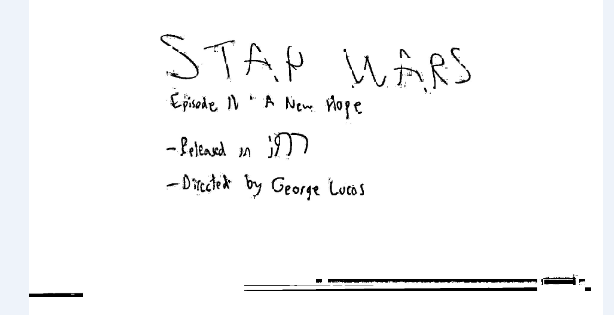 STAR WARS
Episode IV - A New Hope
- Released in 1977
- Directed by George Lucas